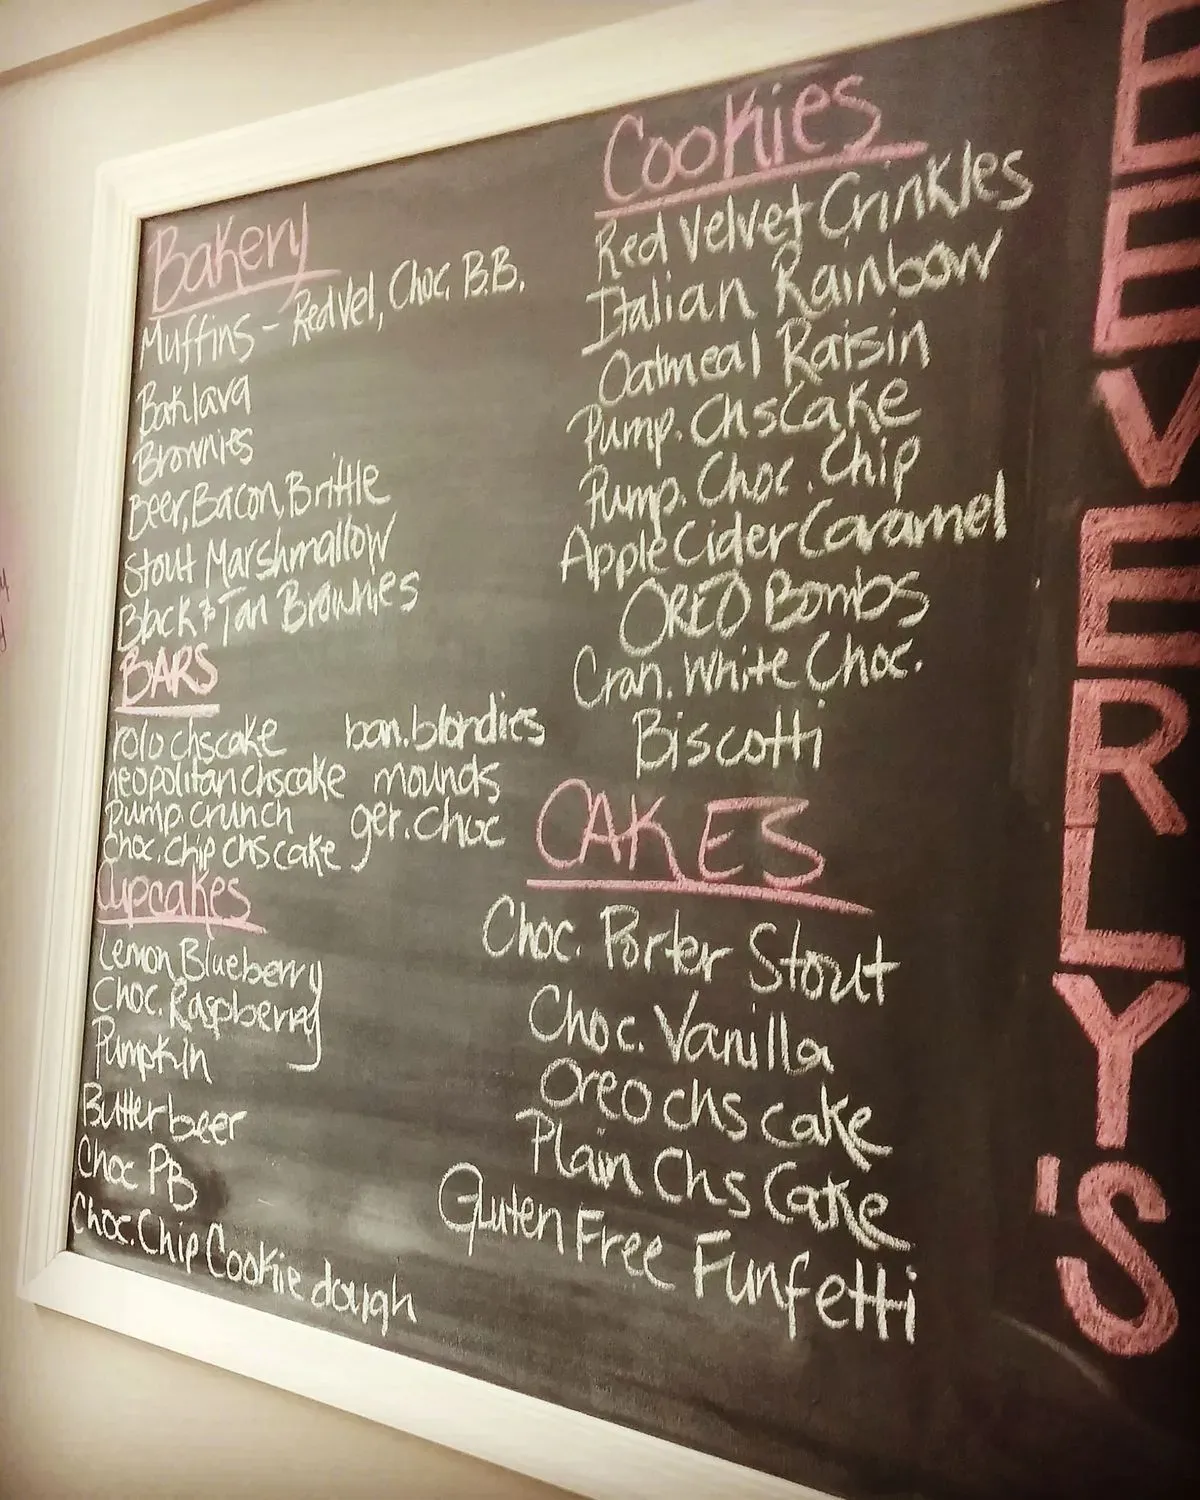 Bakery
Muffins - Red Vel, Choc. B.B.
Baklava
Brownies
Beer, Bacon, Brittle
Stout Marshmallow
Black & Tan Brownies
BARS
rolo chscake ban. blondies
neopolitan chscake mounds
pump. crunch ger. choc
choc. chip chscake
Cupcakes
Lemon Blueberry
Choc. Raspberry
Pumpkin
Butterbeer
Choc PB
Choc. Chip Cookie dough
Cookies
Red Velvet Crinkles
Italian Rainbow
Oatmeal Raisin
Pump. ChsCake
Pump. Choc. Chip
Apple Cider Caramel
OREO Bombs
Cran. White Choc.
Biscotti
CAKES
Choc. Porter Stout
Choc. Vanilla
Oreo chs cake
Plain Chs Cake
Gluten Free Funfetti
EVERLY'S